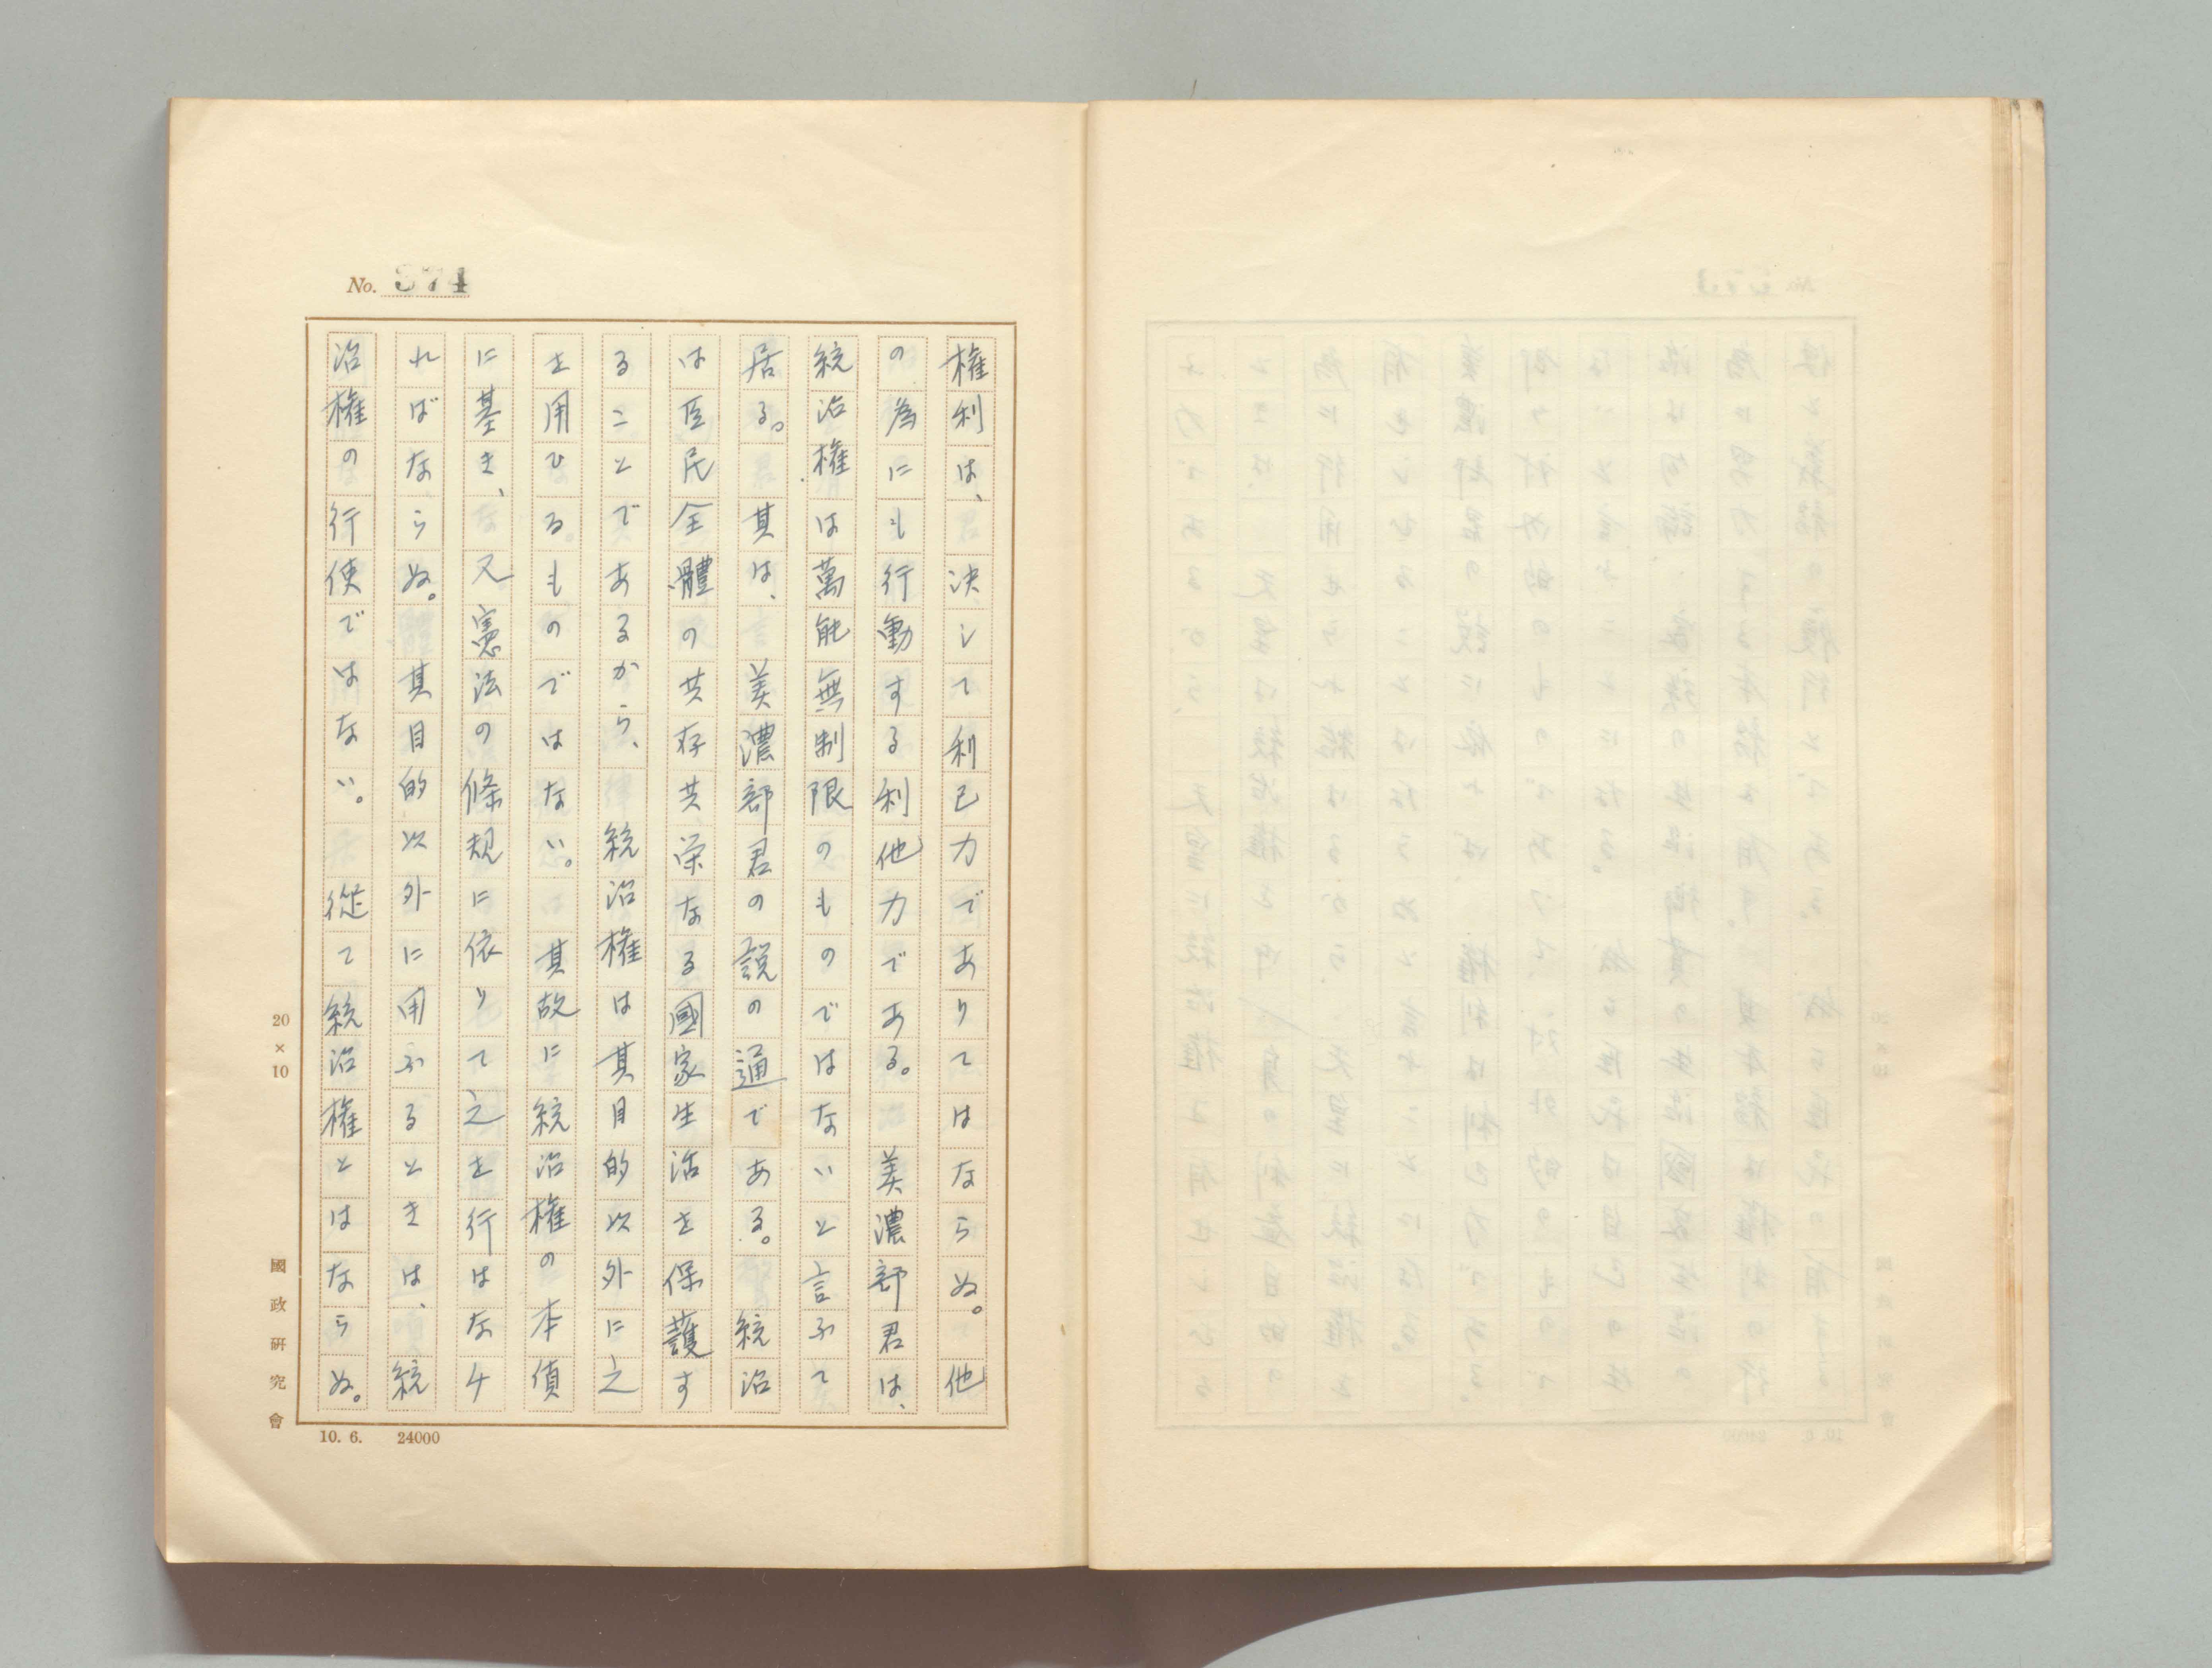 No. 374
権利は、決シて利己力でありてはならぬ。他
の為にも行動する利他力である。美濃部君は、
統治権は萬能無制限のものではないと言ふて
居る。其は、美濃部君の説の通である。統治
は臣民全體の共存共栄なる國家生活を保護す
ることであるから、統治権は其目的以外に之
を用ひるものではない。其故に統治権の本債
に基き、又憲法の條規に依りて之を行はなけ
ればならぬ。其目的以外に用ふるときは、統
治権の行使ではない。従て統治権とはならぬ。
20×10
國政研究會
10. 6. 24000